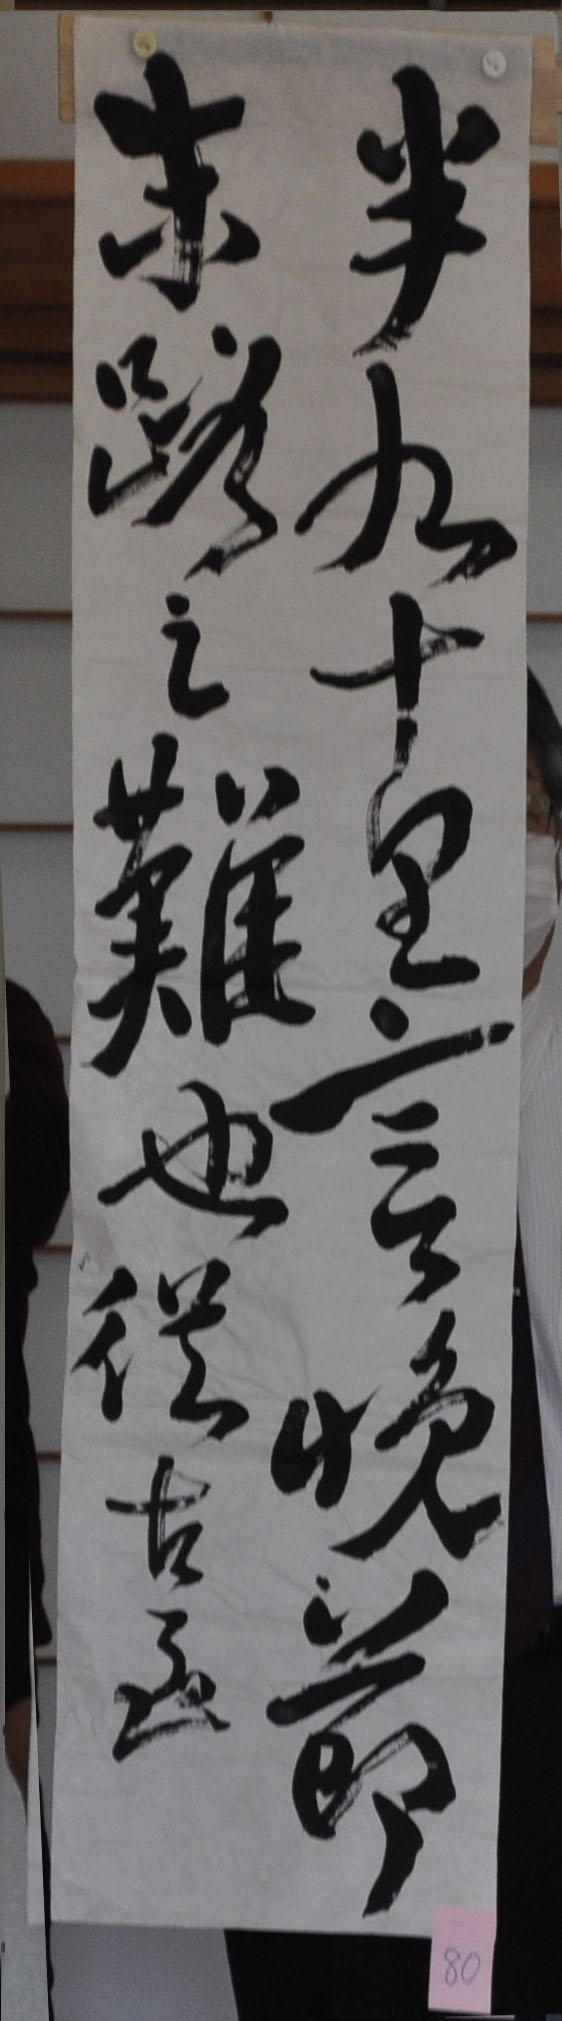 半九十里言晩節
末路之難也従古
80